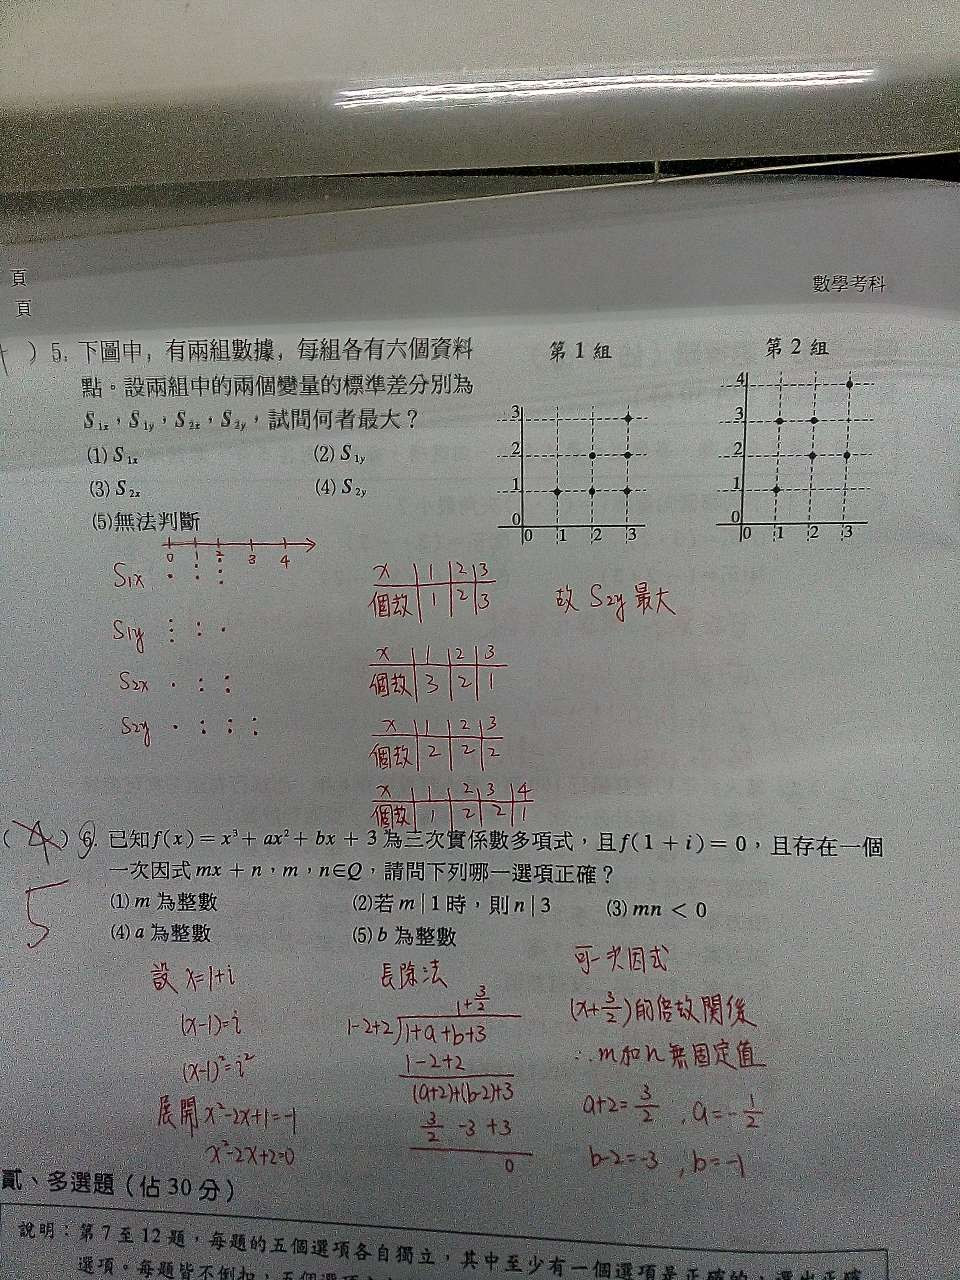 頁
頁
數學考科
) 5. 下圖中，有兩組數據，每組各有六個資料
點。設兩組中的兩個變量的標準差分別為
S1x，S1y，S2x，S2y，試問何者最大？
(1) S1x (2) S1y
(3) S2x (4) S2y
(5)無法判斷
第 1 組
3
2
1
0
0 1 2 3
第 2 組
4
3
2
1
0
0 1 2 3
0 1 2 3 4
S1x
S1y
S2x
S2y
x 1 2 3
個數 1 2 3
x 1 2 3
個數 3 2 1
x 1 2 3
個數 2 2 2
x 1 2 3 4
個數 1 2 2 1
故 S2y 最大
( 4 ) 6. 已知 f(x) = x³ + ax² + bx + 3 為三次實係數多項式，且 f(1 + i) = 0，且存在一個
一次因式 mx + n，m，n∈Q，請問下列哪一選項正確？
5
(1) m 為整數 (2)若 m | 1 時，則 n | 3 (3) mn < 0
(4) a 為整數 (5) b 為整數
設 x=1+i
(x-1)=i
(x-1)²=i²
展開 x²-2x+1=-1
x²-2x+2=0
長除法
1+3/2
1-2+2 1+a+b+3
1-2+2
(a+2)+(b-2)+3
3/2 -3 +3
0
可一次因式
(x+3/2)的倍數關係
∴m和n無固定值
a+2=3/2 , a=-1/2
b-2=-3 , b=-1
貳、多選題（佔 30 分）
說明：第 7 至 12 題，每題的五個選項各自獨立，其中至少有一個選項是正確的，選出正確
選項。每題皆不倒扣，五個選項